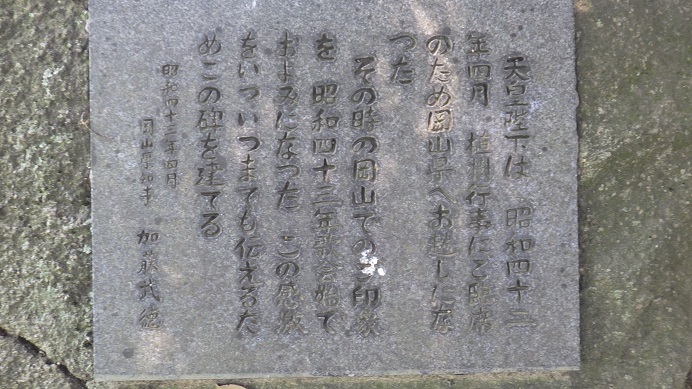 天皇陛下は 昭和四十二
年四月 植樹行事にご臨席
のため岡山県へお越しにな
つた
その時の岡山でのご印象
を 昭和四十三年歌会始で
およみになつた この感激
をいついつまでも伝えるた
めこの碑を建てる
昭和四十三年四月
岡山県知事 加藤武徳